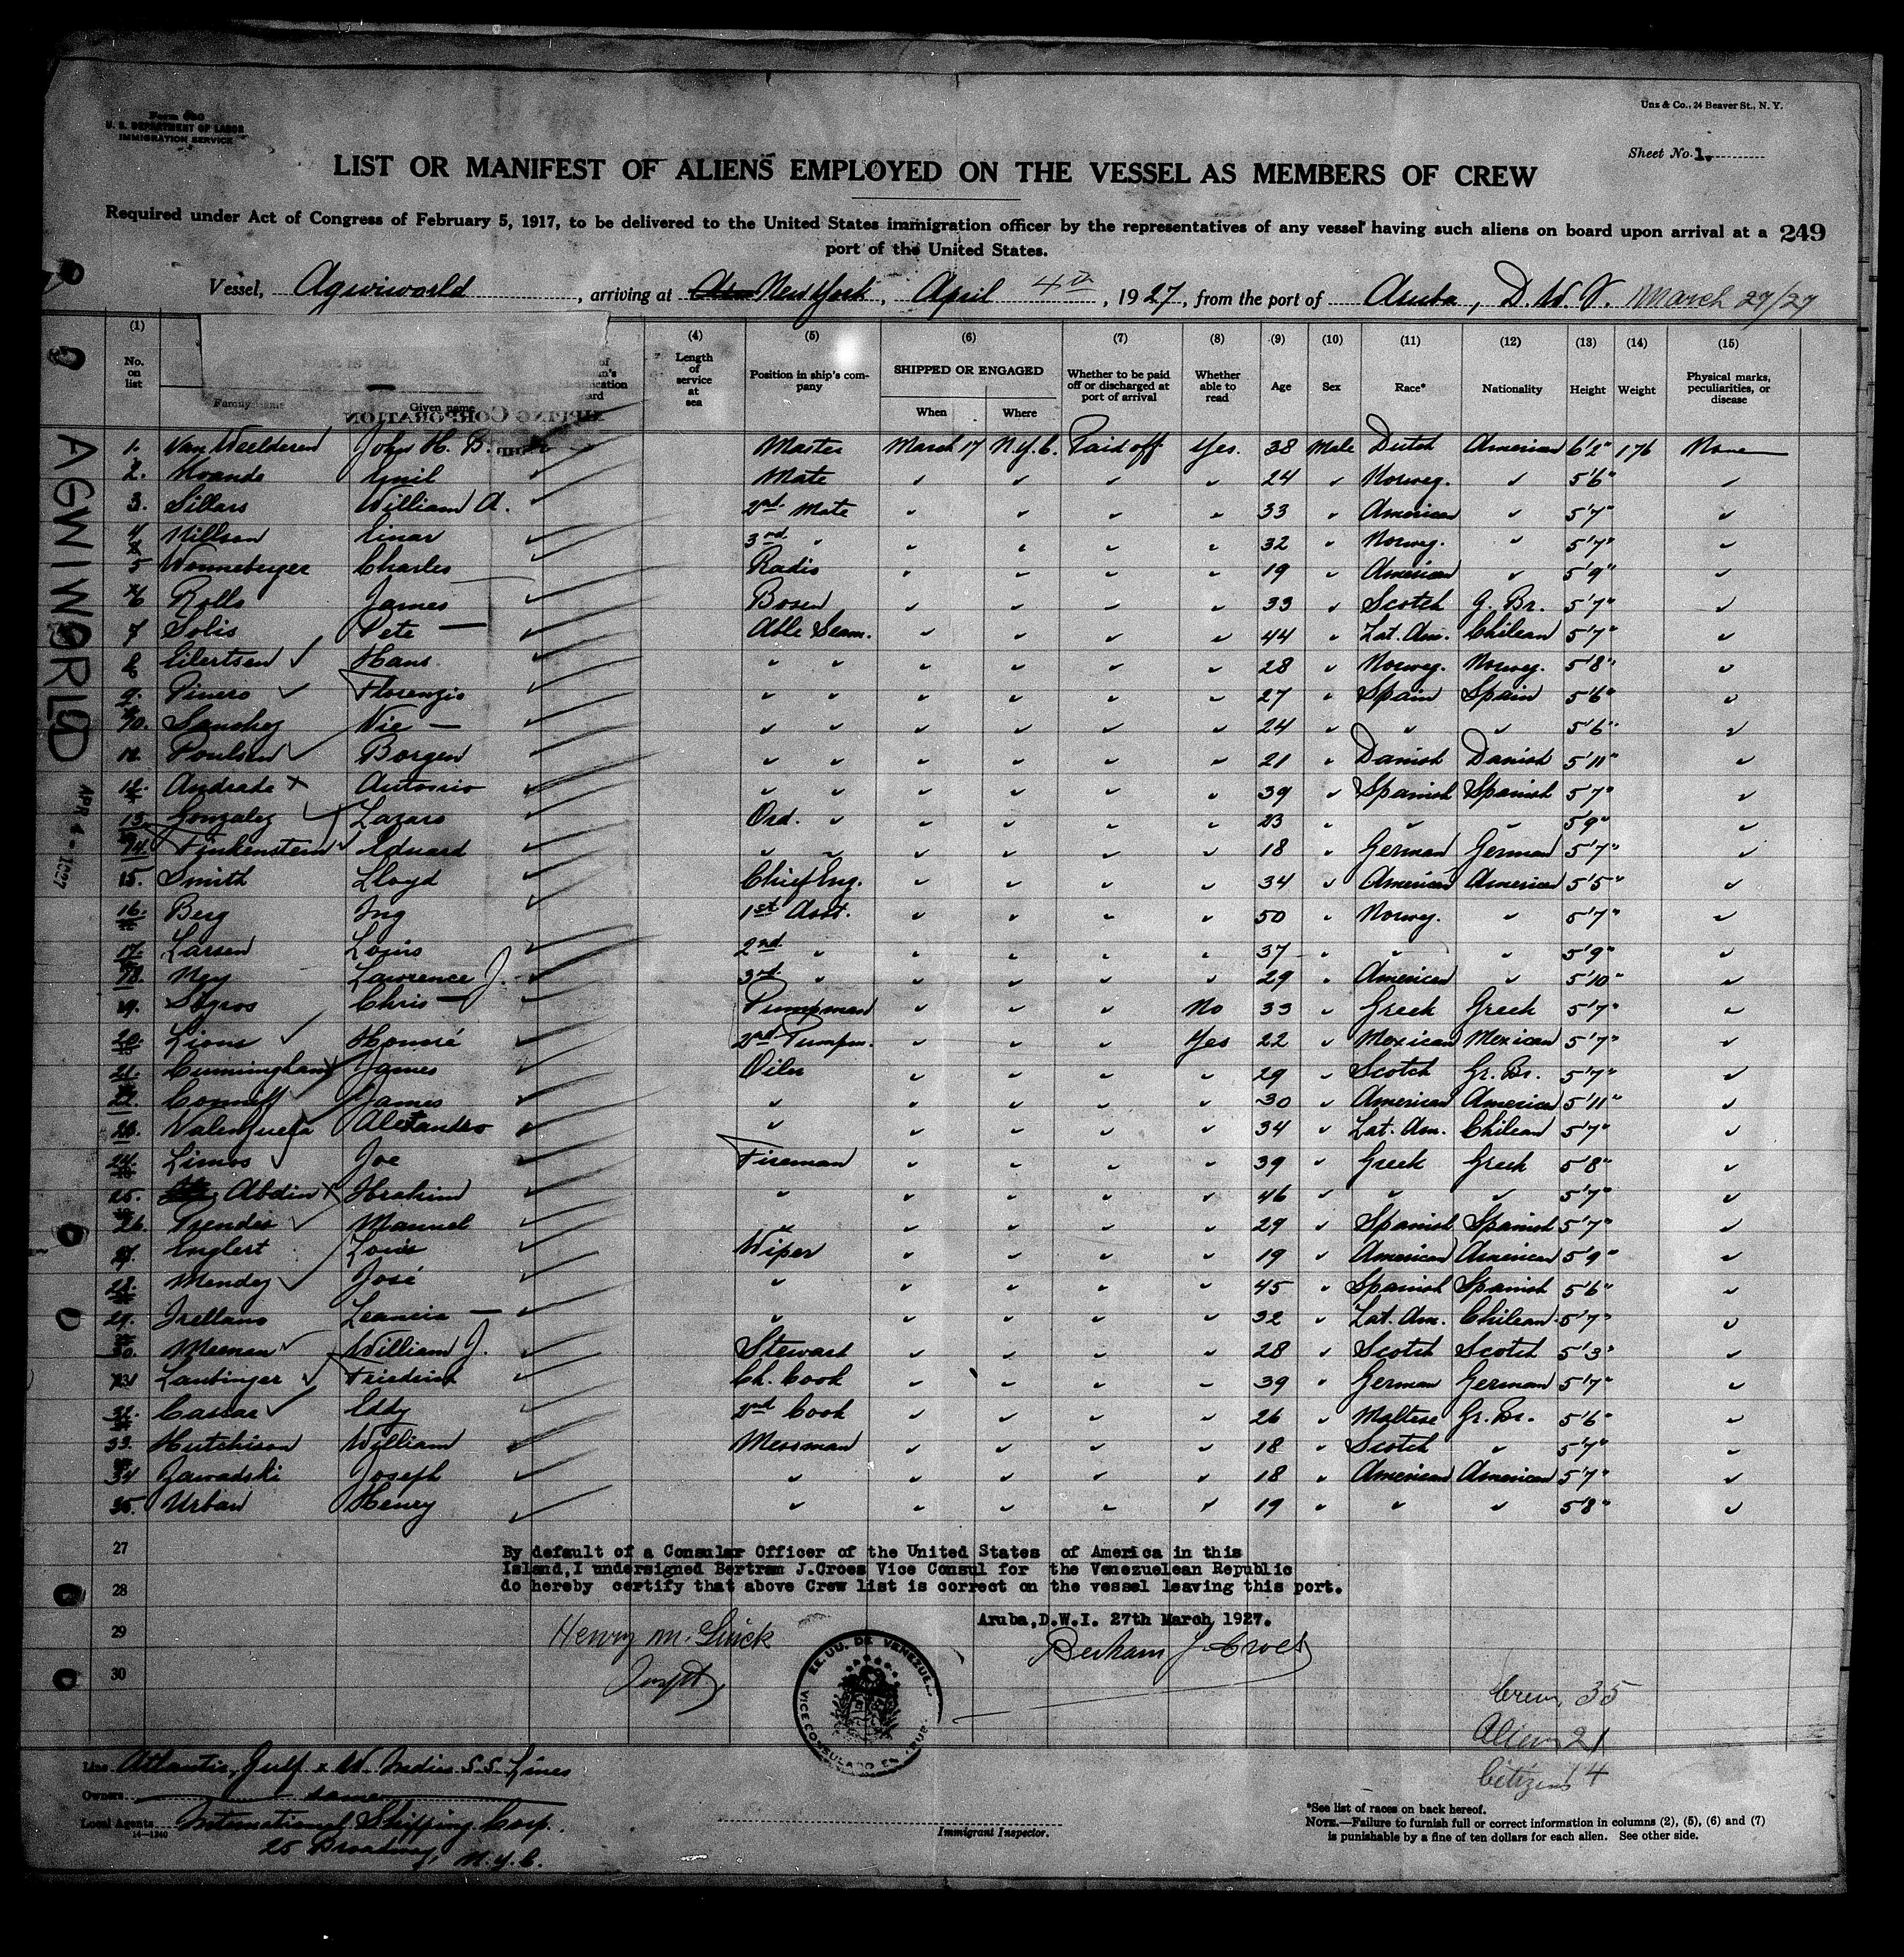 Unz & Co., 24 Beaver St., N. Y.
U. S. DEPARTMENT OF LABOR
IMMIGRATION SERVICE
Sheet No. 1.
LIST OR MANIFEST OF ALIENS EMPLOYED ON THE VESSEL AS MEMBERS OF CREW
Required under Act of Congress of February 5, 1917, to be delivered to the United States immigration officer by the representatives of any vessel having such aliens on board upon arrival at a
port of the United States.
249
Vessel, Agwiworld, arriving at New York, April 4th, 1927, from the port of Aruba, D. W. I. March 27/27
(1) (4) (5) (6) (7) (8) (9) (10) (11) (12) (13) (14) (15)
No. on list Family name Given name Length of service at sea Position in ship's company SHIPPED OR ENGAGED When Where Whether to be paid off or discharged at port of arrival Whether able to read Age Sex Race* Nationality Height Weight Physical marks, peculiarities, or disease
AGWIWORLD
APR 4 - 1927
1. Van Weelderen John H. B. Master March 17 N.Y.C. Paid off Yes. 38 Male Dutch American 6'2" 176 None
2. Emil Mate 24 Norweg. 5'6"
3. Sillars William A. 2nd Mate 33 American 5'7"
4 Nillson Einar 3rd 32 Norweg. 5'7"
5 Wonneberger Charles Radio 19 American 5'9"
6 Rolls James Bosen 33 Scotch G. Br. 5'7"
7 Solis Pete Able Seam. 44 Lat. Am. Chilean 5'7"
8 Eilertsen Hans 28 Norweg. Norweg. 5'8"
9. Florenzio 27 Spain Spain 5'6"
10. Sanchez Vic 24 5'6"
Poulsen Borgen 21 Danish Danish 5'11"
12. Andrade Antonio 39 Spanish Spanish 5'7"
13 Gonzalez Lazaro Ord. 23 5'9"
14. Finkenstein Eduard 18 German German 5'7"
15. Smith Lloyd Chief Eng. 34 American American 5'5"
16. Berg Ing 1st Asst. 50 Norweg. 5'7"
17. Larsen Louis 2nd 37 5'9"
18. Ney Lawrence J. 3rd 29 American 5'10"
19. Chris Pumpman No 33 Greek Greek 5'7"
20. Honoré 2nd Pumpm. Yes 22 Mexican Mexican 5'7"
21. Cunningham James Oiler 29 Scotch Gr. Br. 5'7"
22. Conniff James 30 American American 5'11"
23. Valenzuela Alejandro 34 Lat. Am. Chilean 5'7"
24. Limos Joe Fireman 39 Greek Greek 5'8"
25. Abdin Ibrahim 46 5'7"
26. Manuel 29 Spanish Spanish 5'7"
27. Englert Louis Wiper 19 American American 5'9"
28. Mendez José 45 Spanish Spanish 5'6"
29. 32 Lat. Am. Chilean 5'7"
30. Meenan William J. Steward 28 Scotch Scotch 5'3"
31 Lanbinger Friedrich Ch. Cook 39 German German 5'7"
32. Cassar Eddy 2nd Cook 26 Maltese Gr. Br. 5'6"
33. Hutchison William Messman 18 Scotch 5'7"
34 Zawadski Joseph 18 American American 5'7"
35. Urban Henry 19 5'8"
27
28
29
30
By default of a Consular Officer of the United States of America in this
Island, I undersigned Bertram J.Croes Vice Consul for the Venezuelean Republic
do hereby certify that above Crew list is correct on the vessel leaving this port.
Aruba,D.W.I. 27th March 1927.
Henry M.
EE.UU. DE VENEZUEL
VICE CONSULADO EN
Crew, 35
Aliens 21
Citizens 14
Line Atlantic, Gulf & W. Indies S.S. Lines
Owners same
Local Agents International Shipping Corp.
25 Broadway, N.Y.C.
14—1240
Immigrant Inspector.
*See list of races on back hereof.
NOTE.—Failure to furnish full or correct information in columns (2), (5), (6) and (7)
is punishable by a fine of ten dollars for each alien. See other side.